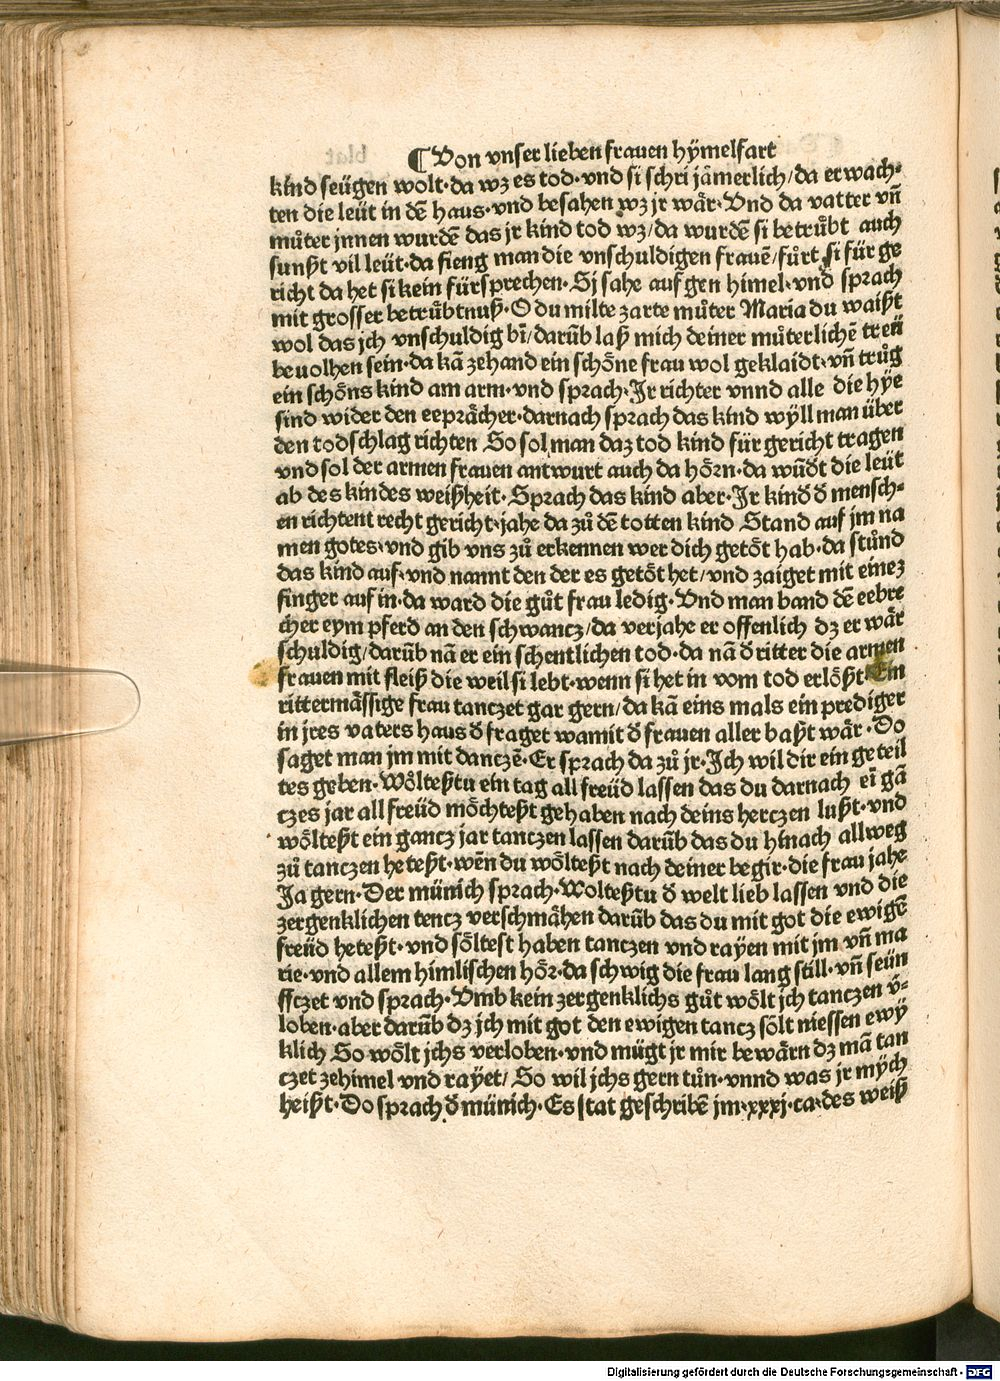 ¶ Von vnser lieben frauen hÿmelfart
kind seügen wolt·da wz es tod·vnd si schri jämerlich/da erwach⸗
ten die leüt in dē haus·vnd besahen wz jr wär·Vnd da vatter vn̄
můter jnnen wurdē das jr kind tod wz/da wurdē si betrůbt auch
sunßt vil leüt·da fieng man die vnschuldigen frauē/fůrt si für ge
richt da het si kein fürsprechen·Sj sahe auf gen himel·vnd sprach
mit grosser betrůbtnuß·O du milte zarte můter Maria du waißt
wol das jch vnschuldig bī/darūb laß mich deiner můterlichē treü
beuolhen sein·da kā zehand ein schöne frau wol geklaidt·vn̄ trůg
ein schöns kind am arm·vnd sprach·Jr richter vnnd alle die hÿe
sind wider den eeprächer·darnach sprach das kind wÿll man über
den todschlag richten So sol man daz tod kind für gericht tragen
vnd sol der armen frauen antwurt auch da hörn·da wūdt die leüt
ab des kindes weißheit·Sprach das kind aber·Jr kindd d mensch⸗
en richtent recht gericht·jahe da zů dē totten kind Stand auf jm na
men gotes·vnd gib vns zů erkennen wer dich getöt hab·da stůnd
das kind auf·vnd nannt den der es getöt het/vnd zaiget mit einez
finger auf in·da ward die gůt frau ledig·Vnd man band dē eebre
cher eym pferd an den schwancz/da verjahe er offenlich dz er wär
schuldig/darūb nā er ein schentlichen tod·da nā d ritter die armen
frauen mit fleiß die weil si lebt·wenn si het in vom tod erlößt·Ein
rittermässige frau tanczet gar gern/da kā eins mals ein prediger
in jres vaters haus d fraget wamit d frauen aller baßt wär·Do
saget man jm mit danczē·Er sprach da zů jr·Ich wil dir ein geteil
tes geben·Wöltestu ein tag all freüd lassen das du darnach eī gā
czes jar all freüd möchteßt gehaben nach deins herczen lußt·vnd
wölteßt ein gancz jar tanczen lassen darūb das du hinach allweg
zů tanczen heteßt·wēn du wölteßt nach deiner begir·die frau jahe
Ja gern·Der münich sprach·Wolteßtu d welt lieb lassen vnd die
zergenklichen tencz verschmähen darūb das du mit got die ewigē
freüd heteßt·vnd söltest haben tanczen vnd raÿen mit jm vn̄ ma
rie·vnd allem himlischen hör·da schwig die frau lang still·vn̄ seün
ffczet vnd sprach·Vmb kein zergenklichs gůt wölt jch tanczen v̄⸗
loben·aber darūb dz jch mit got den ewigen tancz sölt niessen ewÿ
klich So wölt jchs verloben·vnd mügt jr mir bewärn dz mā tan
czet zehimel vnd raÿet/So wil jchs gern tůn·vnnd was jr mÿch
heißt·Do sprach d münich·Es stat geschribē jm·xxxj·ca·des weiß
Digitalisierung gefördert durch die Deutsche Forschungsgemeinschaft - DFG